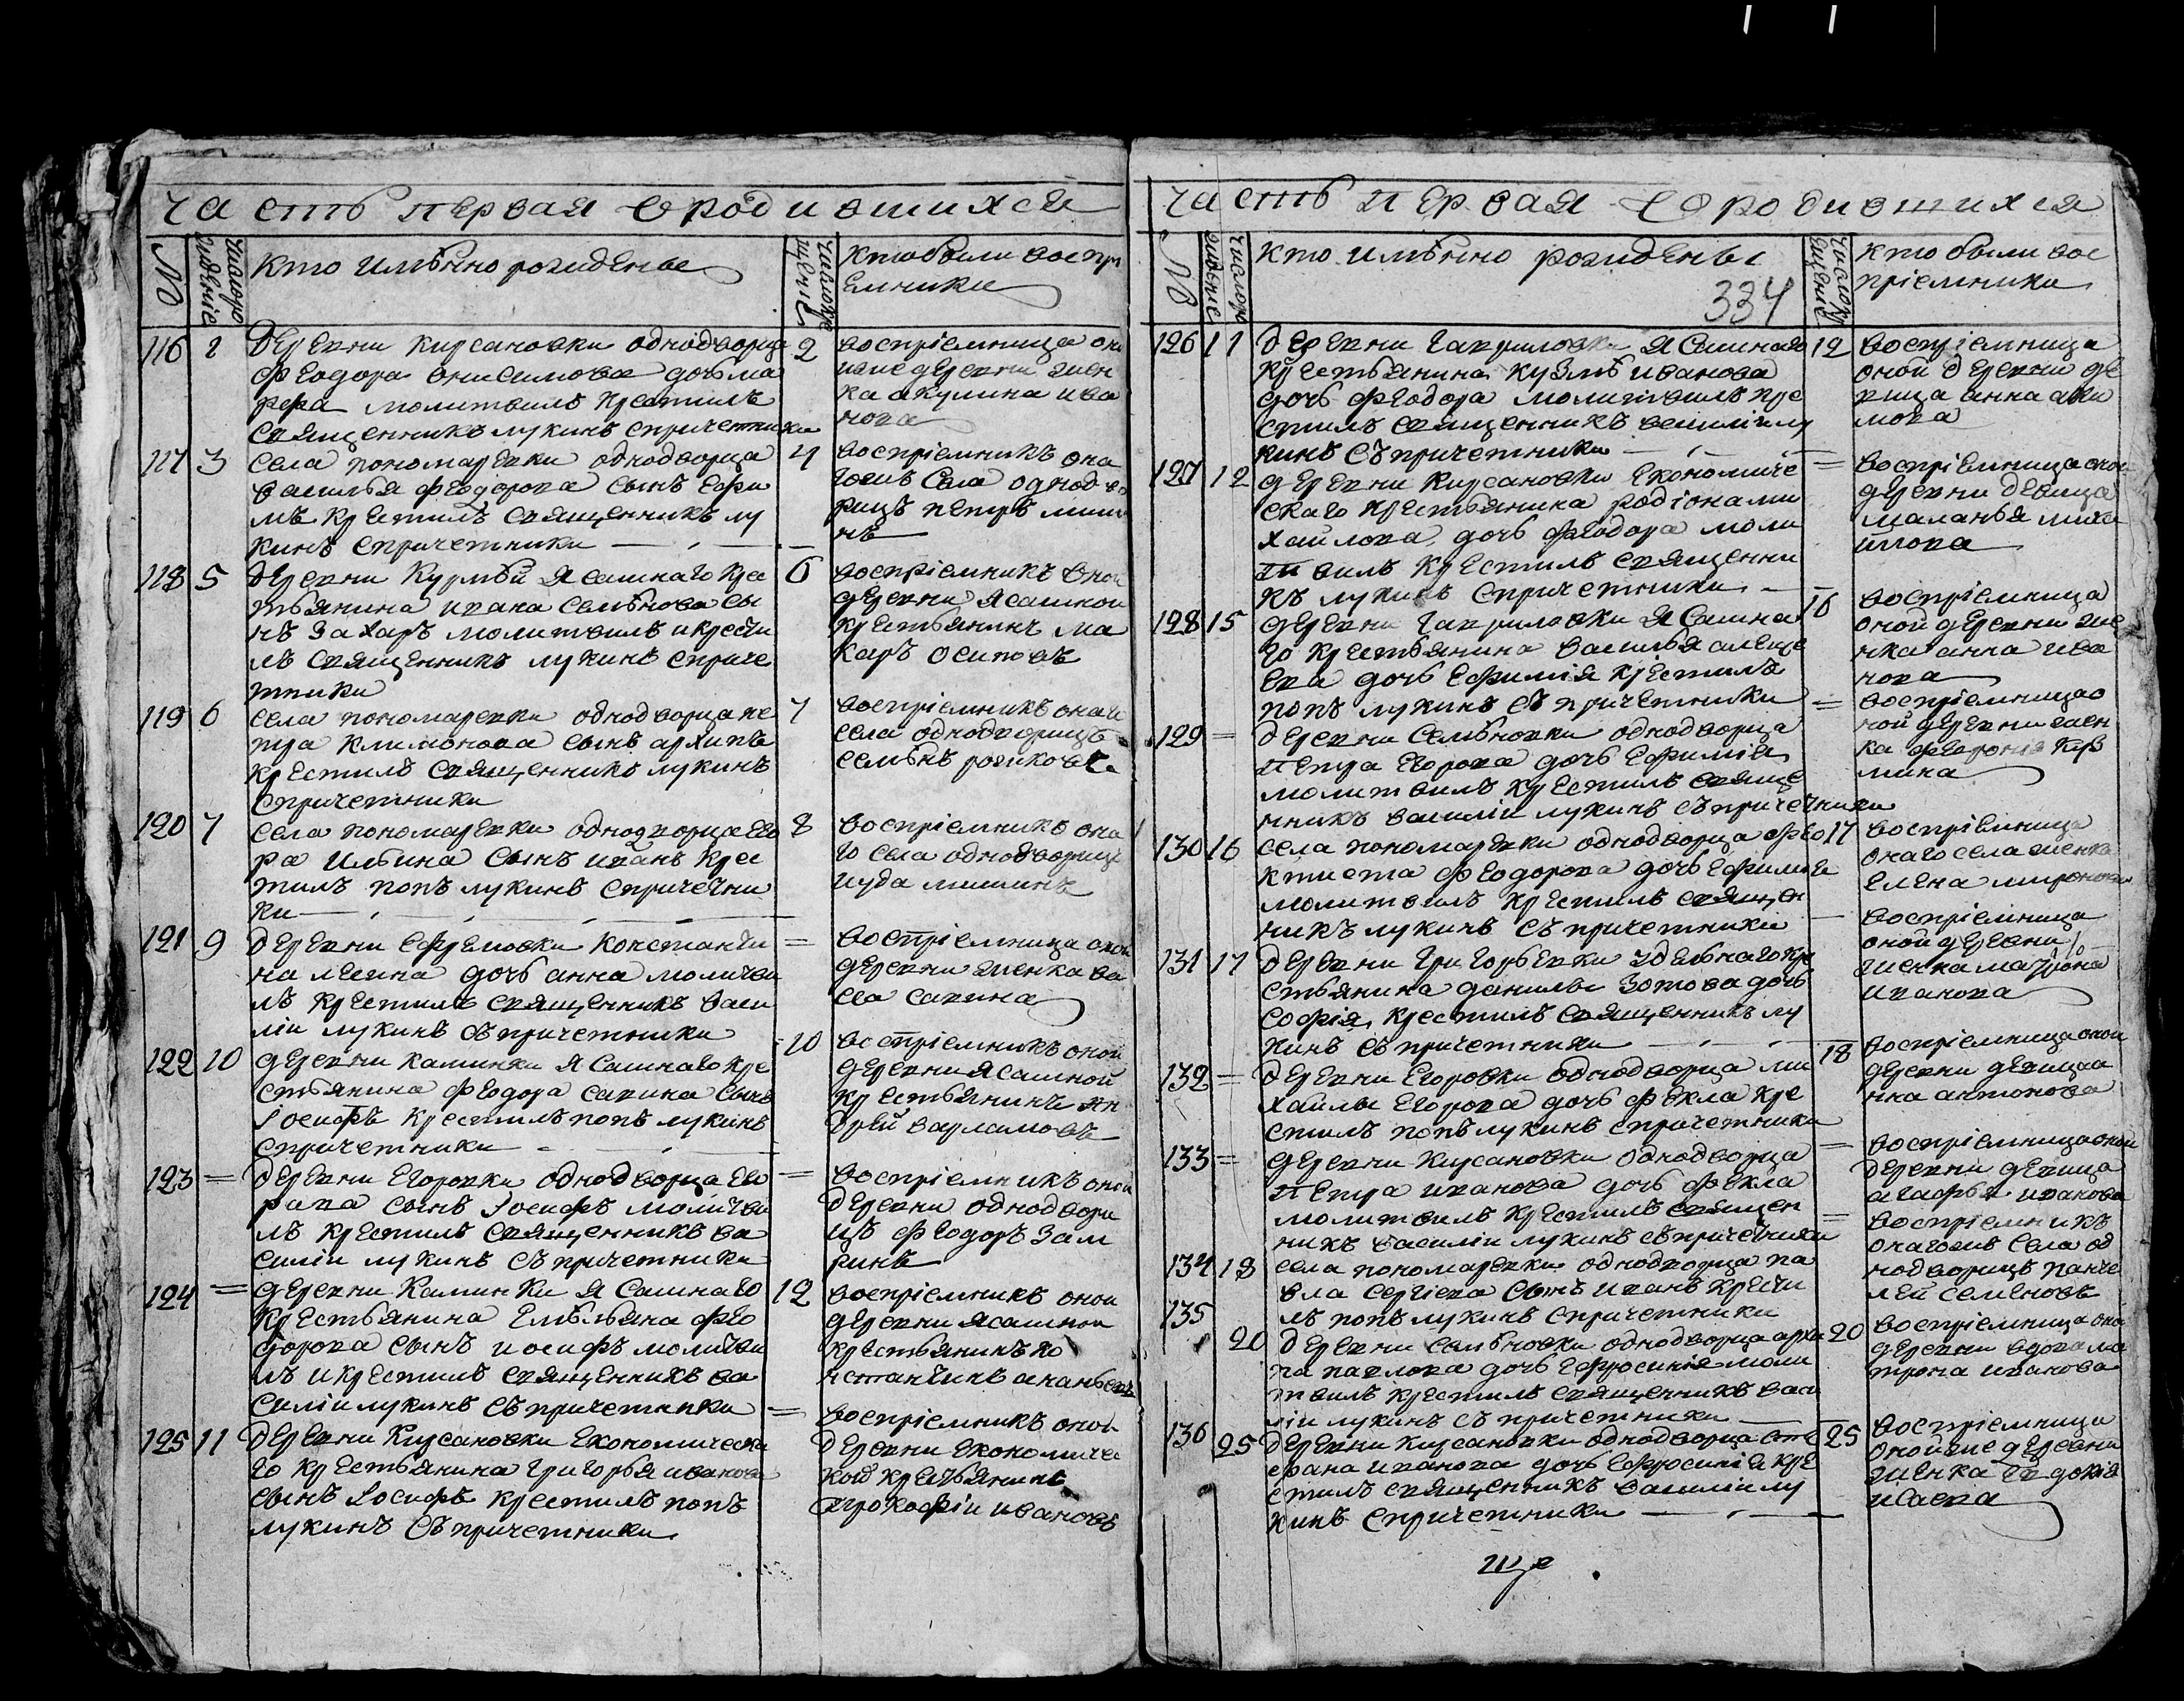 часть первая о родившихся
№
число рождение
кто имѣнно рожденые
число крещение
кто были воспри
емники
116 2 деревни кирсановки однодворца
феодора онисимова дочь ма
рфа молитвилъ крестилъ
священникъ лукинъ спричетники
2 восприемница оно
иже деревни жен
ка акулина ива
нова
117 3 села пономаревки однодворца
василья феодорова сынъ ефи
мъ крестилъ священникъ лу
кинъ спричетники
4 восприемникъ она
гожъ села однодво
рицъ петръ миши
нъ
118 5 деревни Курмѣй Ясашнаго кре
тьянина ивана семѣнова сы
нъ захаръ молитвилъ икрести
лъ священникъ лукинъ сприче
тники
6 восприемникъ оной
деревни ясашной
крестьянинъ ма
каръ осиповъ
119 6 села пономаревки однодворца пе
тра климонова сынъ архипъ
крестилъ священникъ лукинъ
спричетники
7 восприемникъ онаго
села однодворицъ
семѣнъ рожковъ
120 7 села пономаревки однодворца его
ра ильина сынъ иванъ крес
тилъ попъ лукинъ спричетни
ки
8 восприемникъ она
го села однодворицъ
иуда мишинъ
121 9 деревни ефремовки константи
на лешина дочь анна молитви
лъ крестилъ священникъ васи
лiи лукинъ съпричетники
= восприемница оной
деревни женка ва
са савина
122 10 деревни каминки Ясашнаго кре
стьянина феодора савина сынъ
Iосифъ крестилъ попъ лукинъ
спричетники
10 воспрiемникъ оной
деревни ясашной
крестьянинъ ан
дрѣй варламовъ
123 = деревни Егоровки однодворца его
рава сынъ Iосифъ молитви
лъ крестилъ священникъ ва
силiи лукинъ съпричетники
= воспрiемникъ оной
деревни однодвори
цъ феодоръ зам
ринъ
124 = деревни Каминки Ясашнаго
крестьянина Емѣльяна фео
дорова сынъ иосифъ молитви
лъ икрестилъ священникъ ва
силiи лукинъ съпричетники
12 воспрiемникъ оной
деревни ясашной
крестьянинъ ко
нстантинъ ананьевъ
125 11 деревни Кирсановки Економическа
го крестьянина григорья иванова
сынъ Iосифъ крестилъ попъ
лукинъ съпричетники
= воспрiемникъ оной
деревни економичес
кой крестьянинъ
прокофiи ивановъ
часть первая о родившихся
№
число рождение
кто имѣнно рожденые
334
число крещение
кто были вос
прiемники
126 11 деревни гавриловки Ясашнаго
крестьянина кузмы иванова
дочь феодора молитвилъ кре
стилъ священникъ василiи лу
кинъ съпричетники
12 воспрiемница
оной деревни де
вица анна аки
мова
127 12 деревни кирсановки економиче
скаго крестьянина родiона ми
хайлова дочь феодора моли
твилъ крестилъ священни
къ лукинъ спричетники
= воспрiемница оной
деревни девица
маланья миха
йлова
128 15 деревни гавриловки Ясашна
го крестьянина василья алеще
ева дочь ефимiя крестилъ
попъ лукинъ съпричетники
16 воспрiемница
оной деревни же
нка анна ива
нова
129 = деревни семѣновки однодворца
петра егорова дочь ефимiя
молитвилъ крестилъ свяще
нникъ василiи лукинъ съпричетники
= воспрiемница о
ной деревни жен
ка феоронiя кув
мина
130 16 села пономаревки однодворца фео
ктиста феодорова дочь ефимия
молитвилъ крестилъ священ
никъ лукинъ съпричетники
17 воспрiемница
онаго села женка
елена миронова
131 17 деревни григорьевки удельнаго кре
стьянина данилы зотова дочь
софiя крестилъ священникъ лу
кинъ съпричетники
— воспрiемница
оной деревни
женка матрона
иванова
132 = деревни Егоровки однодворца ми
хайлы егорова дочь фекла кре
стилъ попъ лукинъ спричетники
18 воспрiемница оной
деревни девица а
нна антонова
133 = деревни кирсановки однодворца
петра иванова дочь фекла
молитвилъ крестилъ священ
никъ василiи лукинъ съпричетники
= воспрiемница оной
деревни девица
агафья иванова
134 18 села пономаревки однодворца па
вла сергiева сынъ иванъ крести
лъ попъ лукинъ спричетники
= воспрiемникъ
онагожъ села од
нодворицъ панте
лей семеновъ
135 20 деревни семѣновки однодворца архи
па павлова дочь ефросинiя моли
твилъ крестилъ священникъ васи
лiи лукинъ съпричетники
20 воспрiемница оной
деревни вдова ма
трона иванова
136 25 деревни кирсановки однодворца сте
фана иванова дочь ефросинiя кре
стилъ священникъ василiи лу
кинъ спричетники
25 воспрiемница
онойже деревни
женка евдокiя
исаева